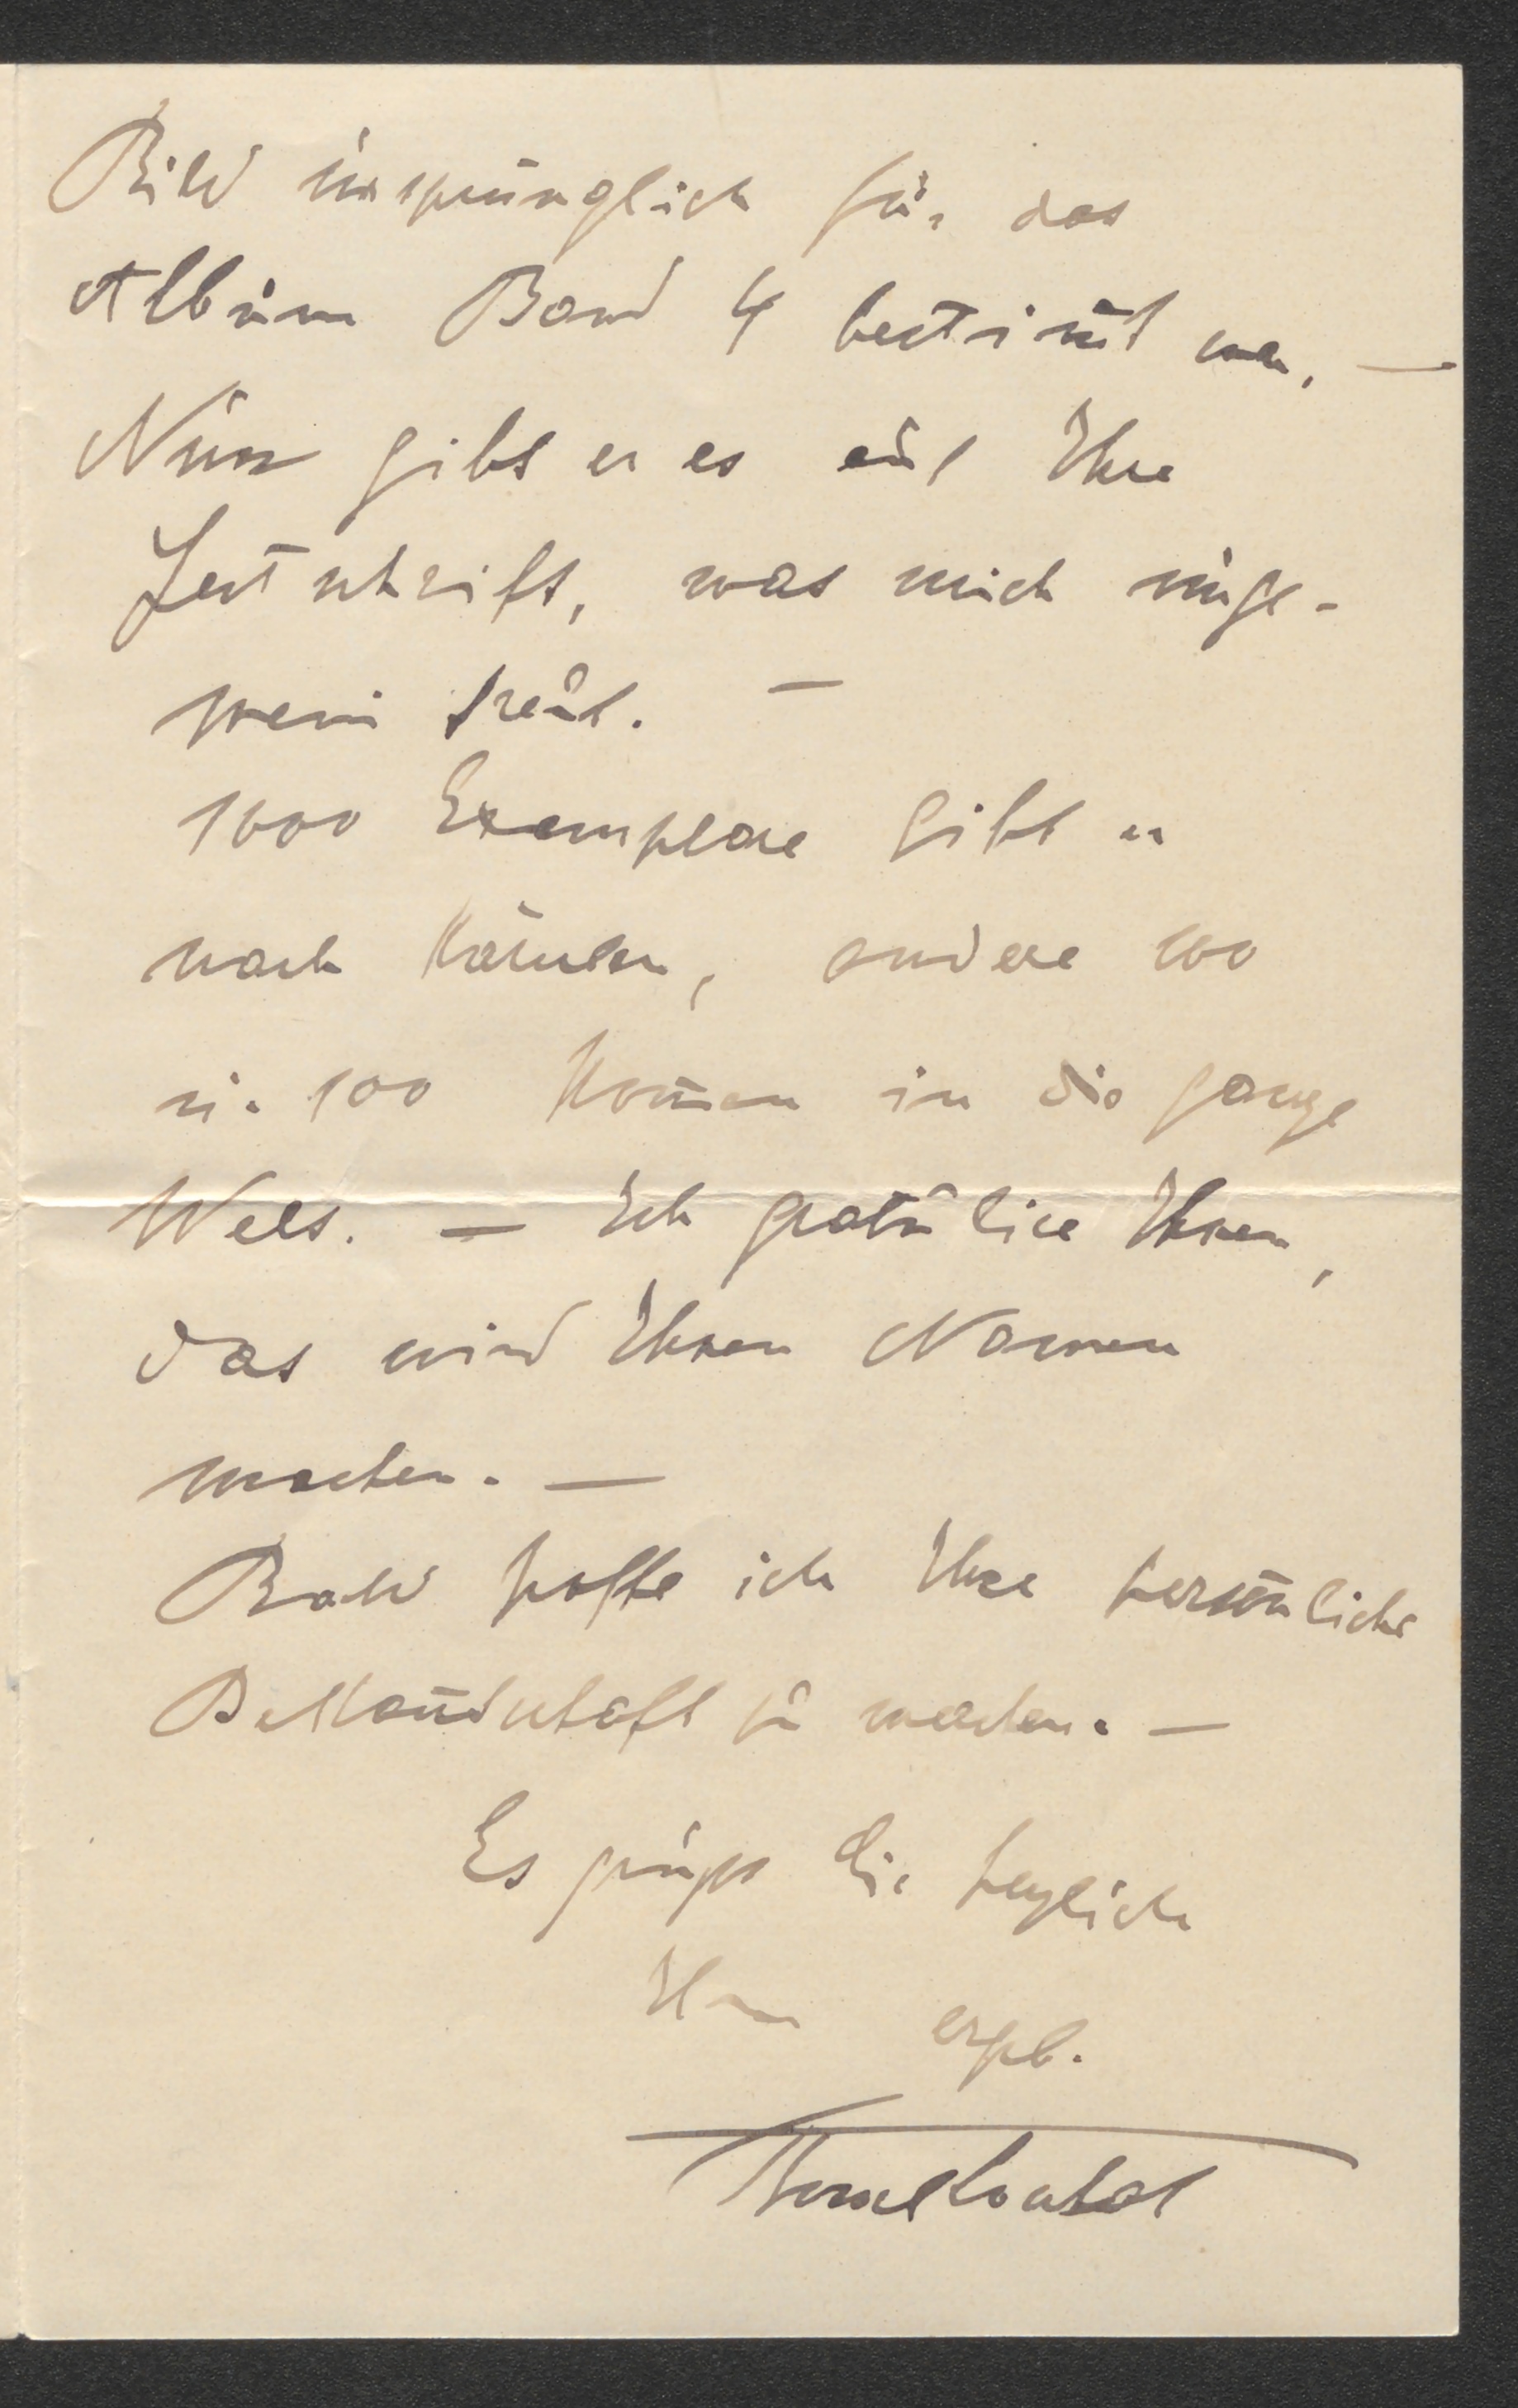 Bild ursprünglich für das
Album Band 4 bestim̅t war. —
Nun gibt er es auf Ihre
Festschrift, was mich unge-
mein freut. —
1000 Exemplare gibt er
nach Kärnten, andere 100
u. 100 kom̅en in die ganze
Welt. — Ich gratuliere Ihnen,
das wird Ihnen Namen
machen. —
Bald hoffe ich Ihre persönliche
Bekan̅tschaft zu machen. —
Es grüßt Sie herzlich
Ihr ergb.